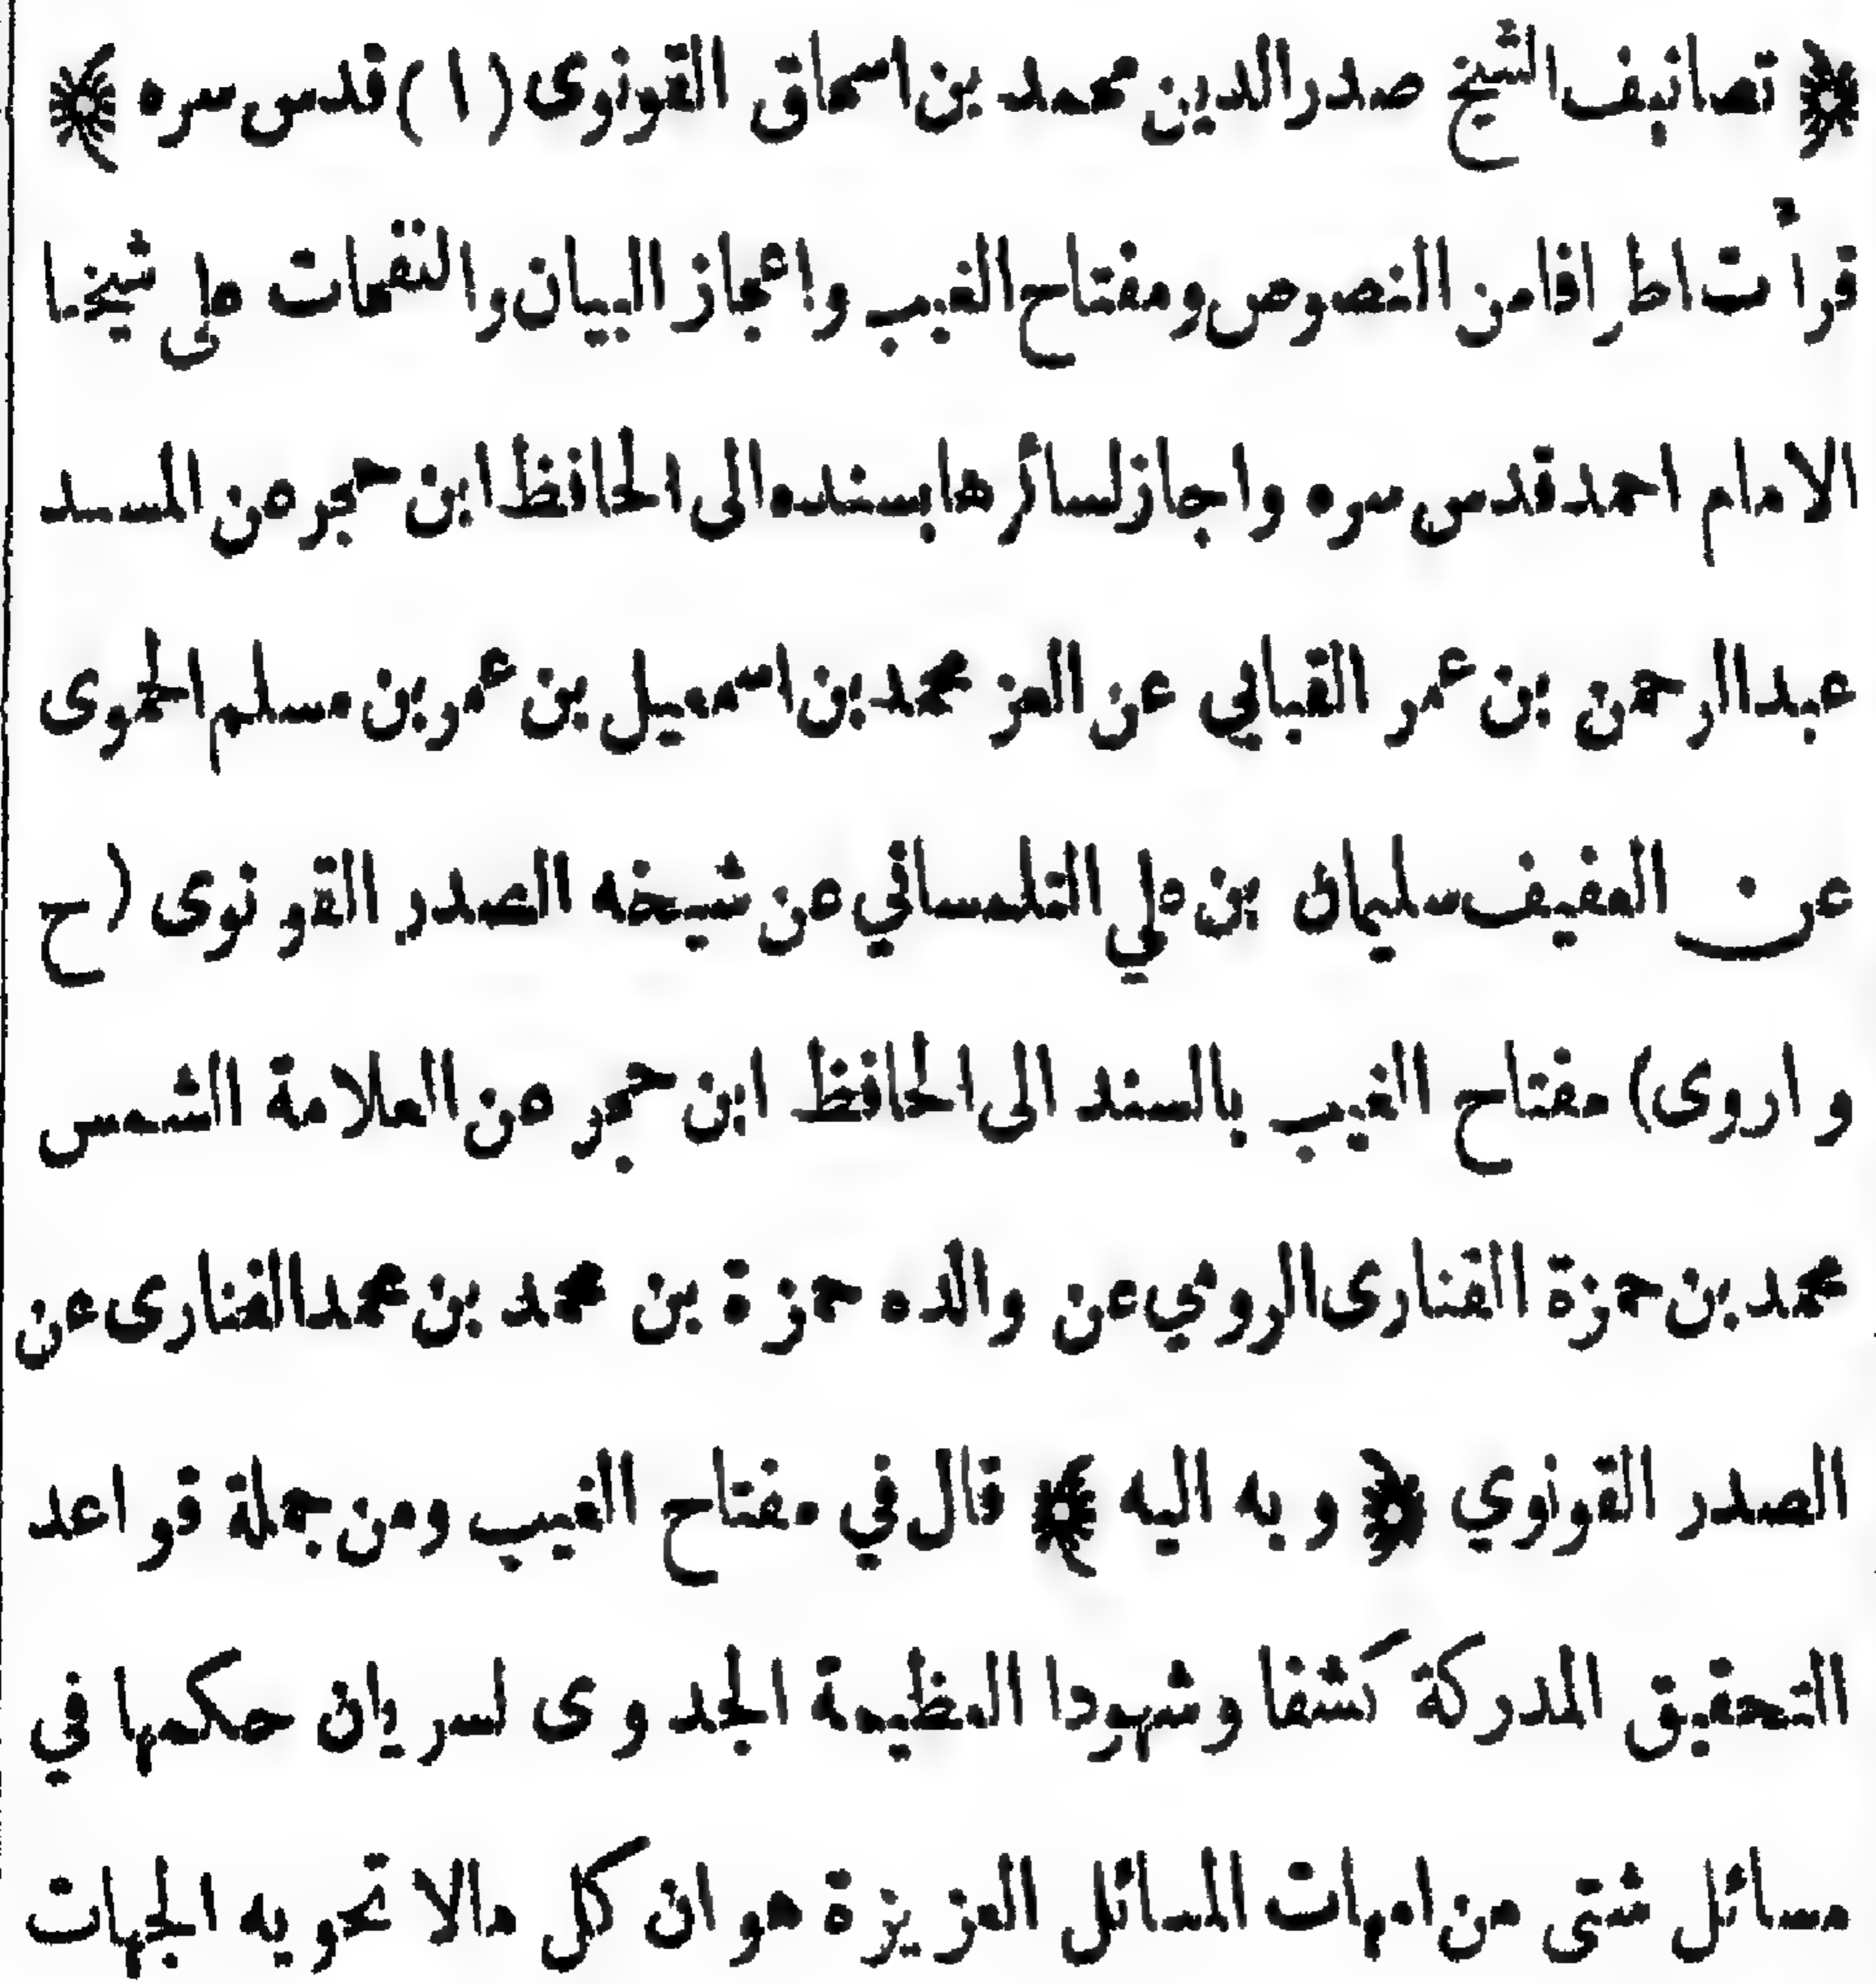 ﴿ تصانيف الشيخ صدر الدين محمد بن اسحاق القونوى (١) قدس سره ﴾
قرأت اطرافا من النصوص ومفتاح الغيب واعجاز البيان والنفحات على شيخنا
الامام احمد قدس سره واجاز لسائرها بسنده الى الحافظ ابن حجر عن المسند
عبد الرحمن بن عمر القبابي عن العز محمد بن اسمعيل بن عمرو بن مسلم الحموى
عن العفيف سليمان بن علي التلمساني عن شيخه الصدر القونوى (ح
واروى) مفتاح الغيب بالسند الى الحافظ ابن حجر عن العلامة الشمس
محمد بن حمزة الفنارى الرومي عن والده حمزة بن محمد بن محمد الفنارى عن
الصدر القونوي ﴿ وبه اليه ﴾ قال في مفتاح الغيب ومن جملة قواعد
التحقيق المدركة كشفا وشهودا العظيمة الجدوى لسريان حكمها في
مسائل شتى من امهات المسائل العزيزة هو ان كل مالا تحويه الجهات